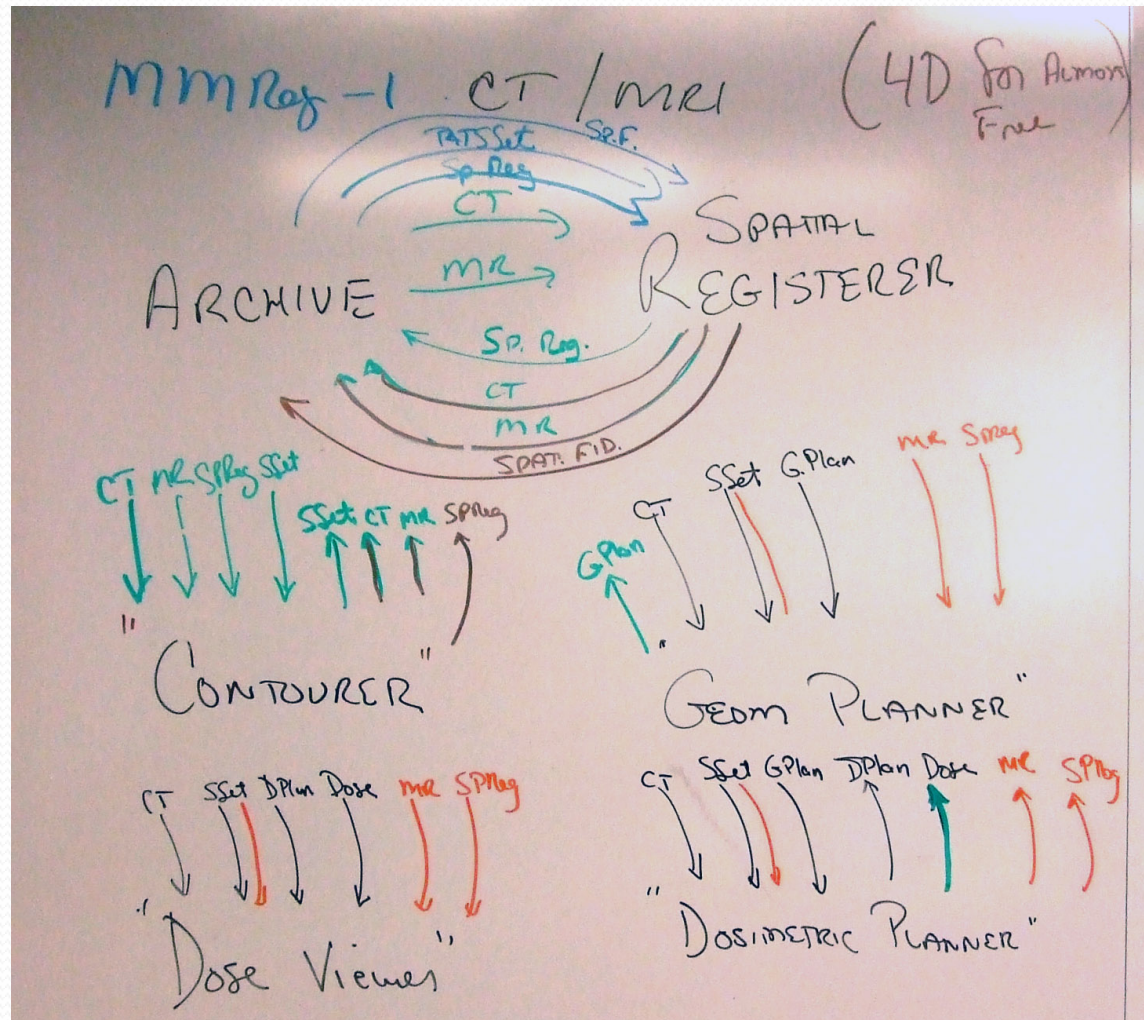 MMReg-1 CT/MRI
(4D for Almost
Free)
Sp.F.
SSet
Sp Reg
CT
MR
ARCHIVE
SPATIAL
REGISTERER
Sp. Reg.
CT
MR
SPAT. FID.
CT MR SPReg SSet
SSet CT MR SPReg
"CONTOURER"
GPlan
CT SSet G.Plan MR SPReg
"GEOM PLANNER"
CT SSet DPlan Dose MR SPReg
"Dose Viewer"
CT SSet GPlan DPlan Dose MR SPReg
"DOSIMETRIC PLANNER"